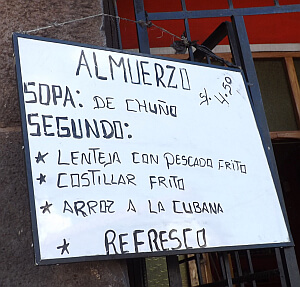 ALMUERZO
S/. 4.50
SOPA: DE CHUÑO
SEGUNDO:
* LENTEJA CON PESCADO FRITO
* COSTILLAR FRITO
* ARROZ A LA CUBANA
* REFRESCO